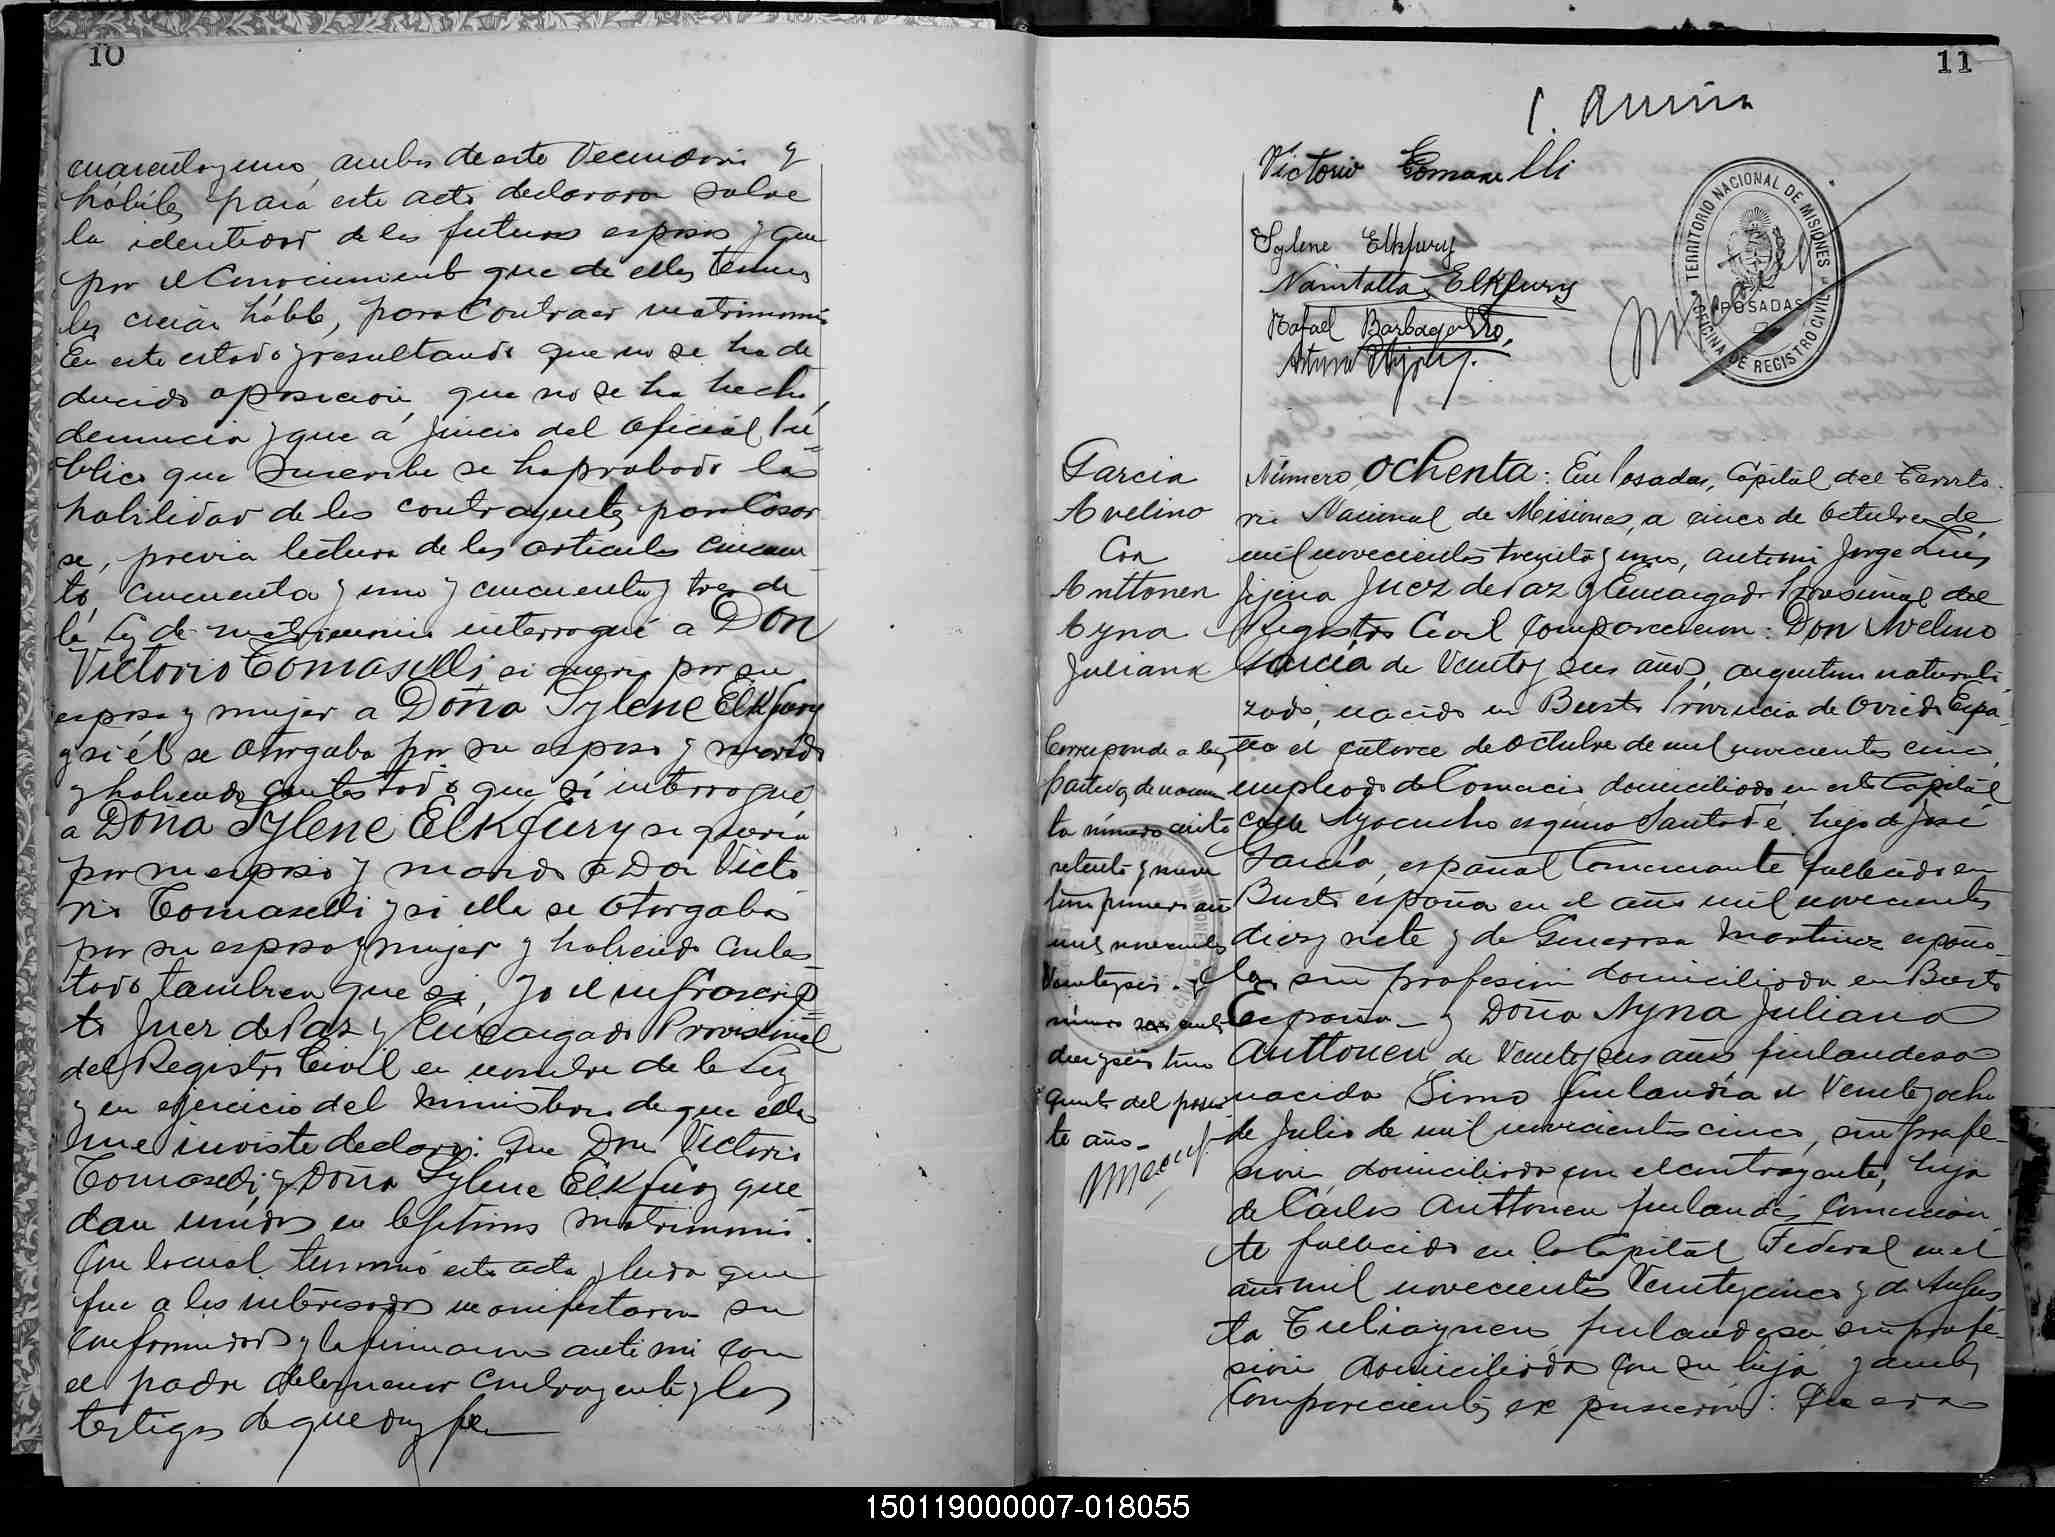 10
cuarenta y uno, ambos de este Vecindario y
hábiles para este acto declararon sobre
la identidad de los futuros esposos y que
por el Conocimiento que de ellos tienen
los creían hábiles, para Contraer matrimonio
En este estado y resultando que no se ha de
ducido oposicion que no se ha hecho
denuncia y que a juicio del Oficial Pú
blico que suscribe se ha probado la
habilidad de los contrayentes para Casar
se, previa lectura de los articulos cincuen
ta, cincuenta y uno y cincuenta y tres de
la Ley de matrimonio interrogué a Don
Victorio Tomaselli, si queria por su
esposa y mujer a Doña Sylene Elkfury
y si él se otorgaba por su esposo y marido
y habiendo contestado que sí interrogué
a Doña Sylene Elkfury si queria
por su esposo y marido a Don Victo
rio Tomaselli y si ella se otorgaba
por su esposa y mujer y habiendo contes
tado tambien que si, Yo el infrascrip
to Juez de Paz y Encargado Provisional
del Registro Civil en nombre de la Ley
y en ejercicio del Ministerio de que ella
me inviste declaro: Que Don Victorio
Tomaselli y Doña Sylene Elkfury que
dan unidos en legitimo matrimonio.
Con lo cual terminó esta acta y leida que
fue a los interesados manifestaron su
conformidad y la firmaron ante mi con
el padre del menor contrayente y los
testigos de que doy fe
11
Victorio Tomaselli
Sylene Elkfury
Elkfury
Rafael Barbagallo
Arturo
TERRITORIO NACIONAL DE MISIONES
POSADAS
OFICINA DE REGISTRO CIVIL
Garcia
Avelino
Con
Anttonen
Ayna
Juliana
Corresponde a las
partidas de nacimien
to número ciento
setenta y nueve
tomo primero año
mil novecientos
veinte y seis y
número
diez y seis tomo
quinto del presen
te año
Número ochenta: En Posadas, Capital del Territo
rio Nacional de Misiones, a cinco de Octubre de
mil novecientos treinta y uno, ante mi Jorge Luis
Jijena Juez de Paz y Encargado Provisional del
Registro Civil comparecieron: Don Avelino
García de Veinte y seis años, argentino naturali
zado, nacido en Busto Provincia de Oviedo Espa-
ña el catorce de Octubre de mil novecientos cinco
empleado de Comercio domiciliado en esta Capital
calle Ayacucho esquina Santa Fé, hijo de José
García, español Comerciante fallecido en
Busto españa en el año mil novecientos
diez y siete y de Generosa Martinez españo
la sin profesion domiciliada en Busto
España y Doña Ayna Juliana
Anttonen de Veinte y seis años finlandesa
nacida Simo finlandia el Veinte y ocho
de Julio de mil novecientos cinco, sin profe-
sion, domiciliada con el contrayente, hija
de Carlos Anttonen finlandés, Comercian
te fallecido en la Capital Federal en el
año mil novecientos Veinte y cinco y de Augus
ta Tuliaynen, finlandesa, sin profe-
sion domiciliada con su hija y ambos
comparecientes expusieron: Que era
150119000007-018055